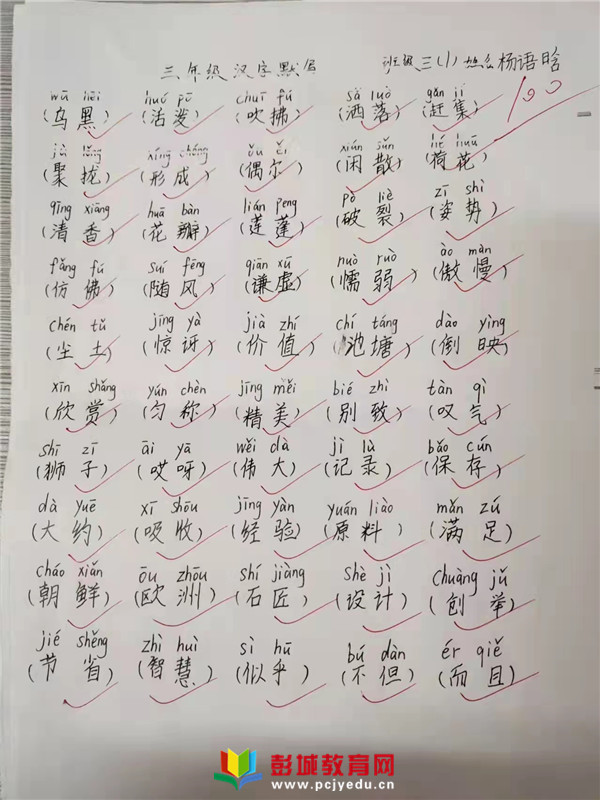 三年级汉字默写 班级三(1) 姓名杨语晗
100
wū hēi huó pō chuī fú sǎ luò gǎn jí
(乌黑) (活泼) (吹拂) (洒落) (赶集)
jù lǒng xíng chéng ǒu ěr xián sǎn hé huā
(聚拢) (形成) (偶尔) (闲散) (荷花)
qīng xiāng huā bàn lián peng pò liè zī shì
(清香) (花瓣) (莲蓬) (破裂) (姿势)
fǎng fú suí fēng qiān xū nuò ruò ào màn
(仿佛) (随风) (谦虚) (懦弱) (傲慢)
chén tǔ jīng yà jià zhí chí táng dào yìng
(尘土) (惊讶) (价值) (池塘) (倒映)
xīn shǎng yún chèn jīng měi bié zhì tàn qì
(欣赏) (匀称) (精美) (别致) (叹气)
shī zi āi yā wěi dà jì lù bǎo cún
(狮子) (哎呀) (伟大) (记录) (保存)
dà yuē xī shōu jīng yàn yuán liào mǎn zú
(大约) (吸收) (经验) (原料) (满足)
cháo xiǎn ōu zhōu shí jiàng shè jì chuàng jǔ
(朝鲜) (欧洲) (石匠) (设计) (创举)
jié shěng zhì huì sì hū bú dàn ér qiě
(节省) (智慧) (似乎) (不但) (而且)
彭城教育网
www.pcjyedu.cn